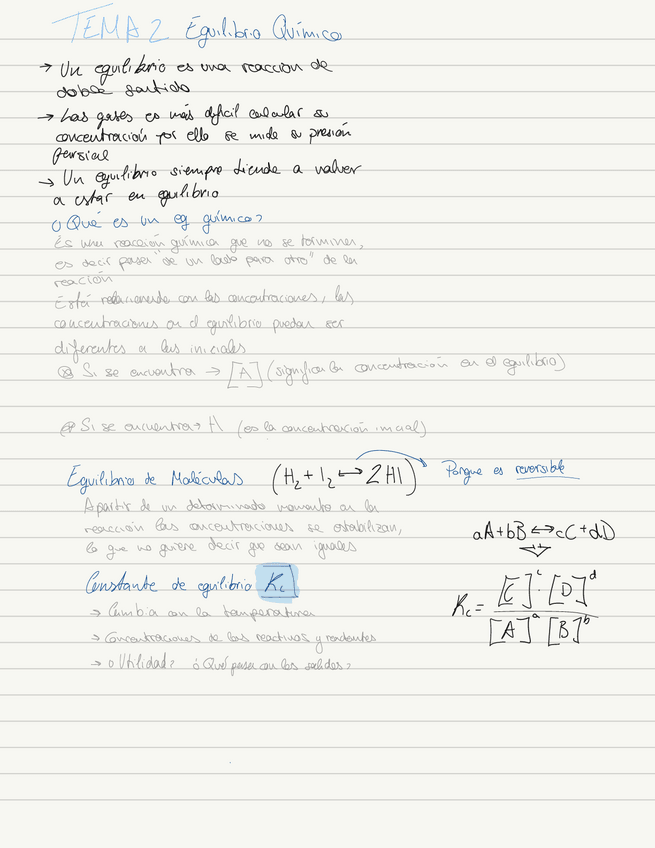 TEMA 2 Equilibrio Químico
→ Un equilibrio es una reacción de
doble sentido
→ Los gases es más difícil calcular su
concentración por ello se mide su presión
persial
→ Un equilibrio siempre tiende a volver
a estar en equilibrio
¿Qué es un eq químico?
Es una reacción química que no se termina,
es decir pasa "de un lado para otro" de la
reacción
Está relacionado con las concentraciones, las
concentraciones en el equilibrio pueden ser
diferentes a las iniciales
Si se encuentra → [A] (significa la concentración en el equilibrio)
Si se encuentra → A (es la concentración inicial)
Equilibrio de Moléculas (H₂ + I₂ ↔ 2HI) Porque es reversible
Apartir de un determinado momento en la
reacción las concentraciones se estabilizan,
lo que no quiere decir que sean iguales
aA + bB ↔ cC + dD
Constante de equilibrio Kc
Kc = [C]^c · [D]^d / [A]^a [B]^b
→ Cambia con la temperatura
→ Concentraciones de los reactivos y
→ ¿Utilidad? ¿Qué pasa con los solidos?